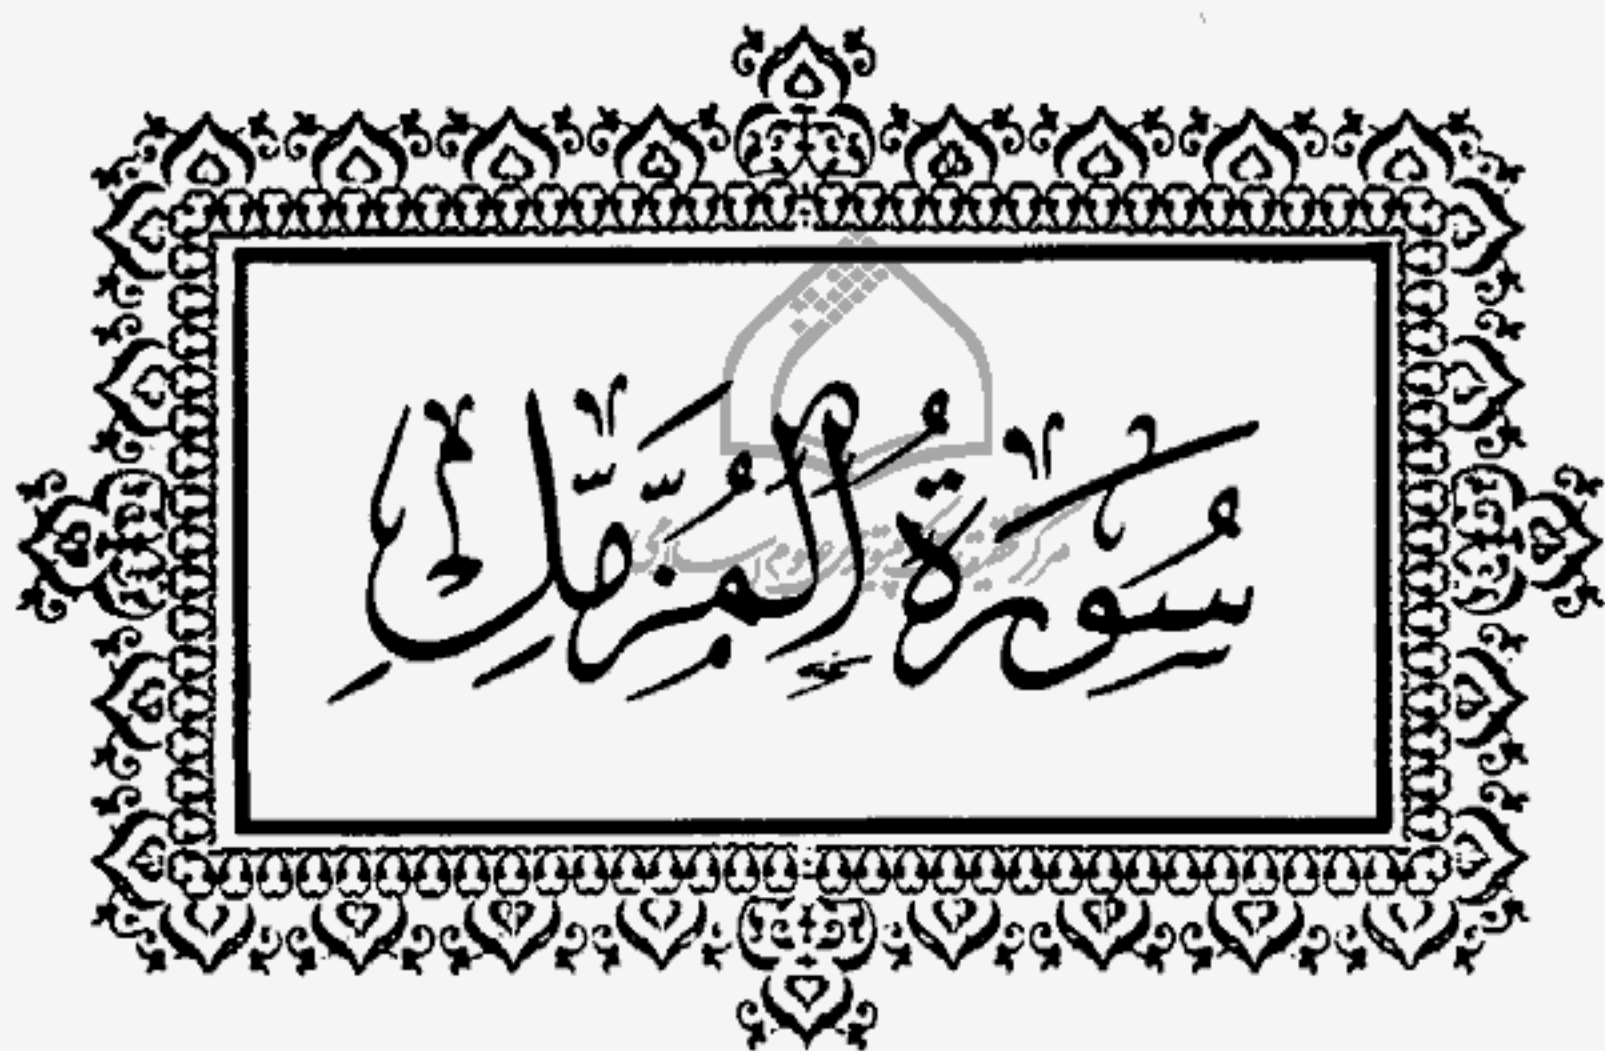 سُورَةُ المُزَّمِّلِ
مرکز تحقیقات کامپیوتری علوم اسلامی